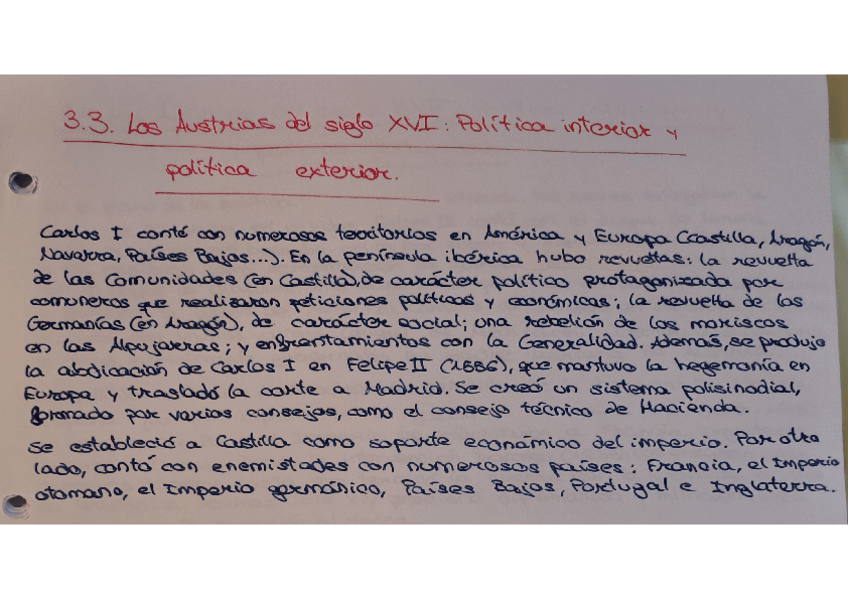 3.3. Los Austrias del siglo XVI: Política interior y
política exterior.
Carlos I contó con numerosos territorios en América y Europa (Castilla, Aragón,
Navarra, Países Bajos...). En la península ibérica hubo revueltas: la revuelta
de las Comunidades (en Castilla), de carácter político protagonizada por
comuneros que realizaron peticiones políticas y económicas; la revuelta de las
Germanías (en Aragón), de carácter social; una rebelión de los moriscos
en las Alpujarras; y enfrentamientos con la Generalidad. Además, se produjo
la abdicación de Carlos I en Felipe II (1556), que mantuvo la hegemonía en
Europa y trasladó la corte a Madrid. Se creó un sistema polisinodial,
formado por varios consejos, como el consejo técnico de Hacienda.
Se estableció a Castilla como soporte económico del imperio. Por otro
lado, contó con enemistades con numerosos países: Francia, el Imperio
otomano, el Imperio germánico, Países Bajos, Portugal e Inglaterra.